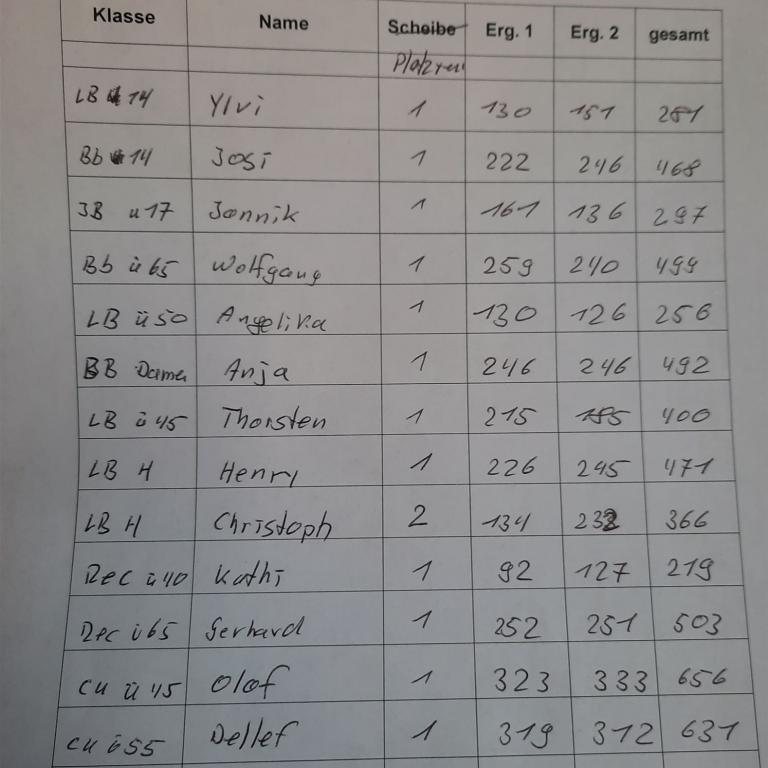 Klasse Name Scheibe Erg. 1 Erg. 2 gesamt
Platzierung
LB u14 Ylvi 1 130 151 281
Bb u14 Josi 1 222 246 468
JB u17 Jannik 1 161 136 297
Bb ü65 Wolfgang 1 259 240 499
LB ü50 Angelika 1 130 126 256
BB Damen Anja 1 246 246 492
LB ü45 Thorsten 1 215 185 400
LB H Henry 1 226 245 471
LB H Christoph 2 134 232 366
Rec ü40 Kathi 1 92 127 219
Rec ü65 Gerhard 1 252 251 503
cu ü45 Olaf 1 323 333 656
cu ü55 Detlef 1 319 312 631